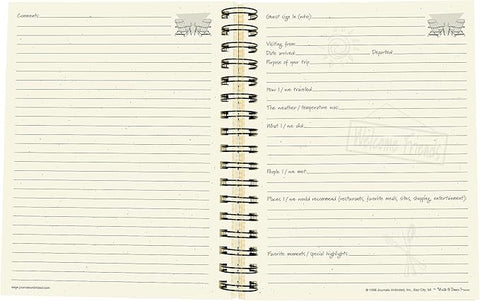 Comments:
www.journalsunlimited.com
Guest Sign In (who)
Visiting from
Date arrived Departed
Purpose of your trip
How I/we traveled
The weather/temperature was
What I/we did
Welcome Friends
People I/we met
Places I/we would recommend (restaurants, favorite meals, sites, shopping, entertainment)
Favorite moments/special highlights
© 1998 Journals Unlimited, Inc., Bay City, MI